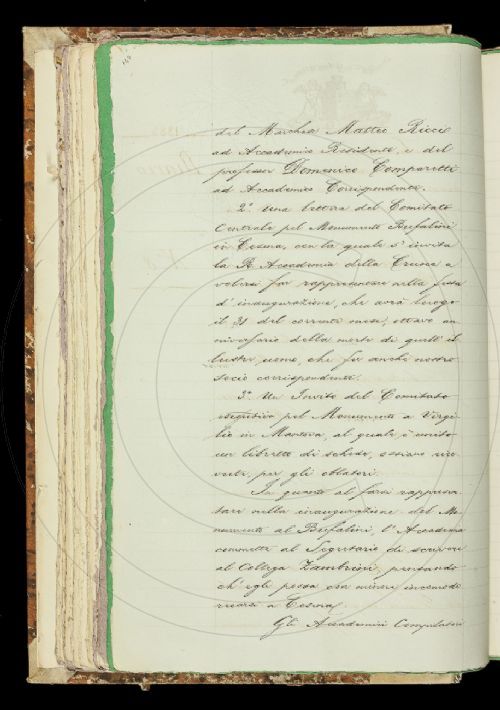 del Marchese Matteo Ricci
ad Accademico Residente, e del
professor Domenico Comparetti
ad Accademico Corrispondente.
2.º Una lettera del Comitato
Centrale pel Monumento Bufalini
in Cesena, con la quale s'invita
la R. Accademia della Crusca a
volersi far rappresentare nella festa
d'inaugurazione, che avrà luogo
il 31 del corrente mese, ottavo an
niversario della morte di quell'il
lustre uomo, che fu anche nostro
Socio corrispondente.
3.º Un Invito del Comitato
esecutivo pel Monumento a Virgi
lio in Mantova, al quale è unito
un libretto di schede, ossiano rice
vute, per gli oblatori.
In quanto al farsi rappresen
tare nella inaugurazione del Mo
numento al Bufalini, l'Accademia
commette al Segretario di scrivere
al Collega Zambrini, pensando
ch'egli possa con minore incomodo
recarsi a Cesena.
Gli Accademici Compilatori